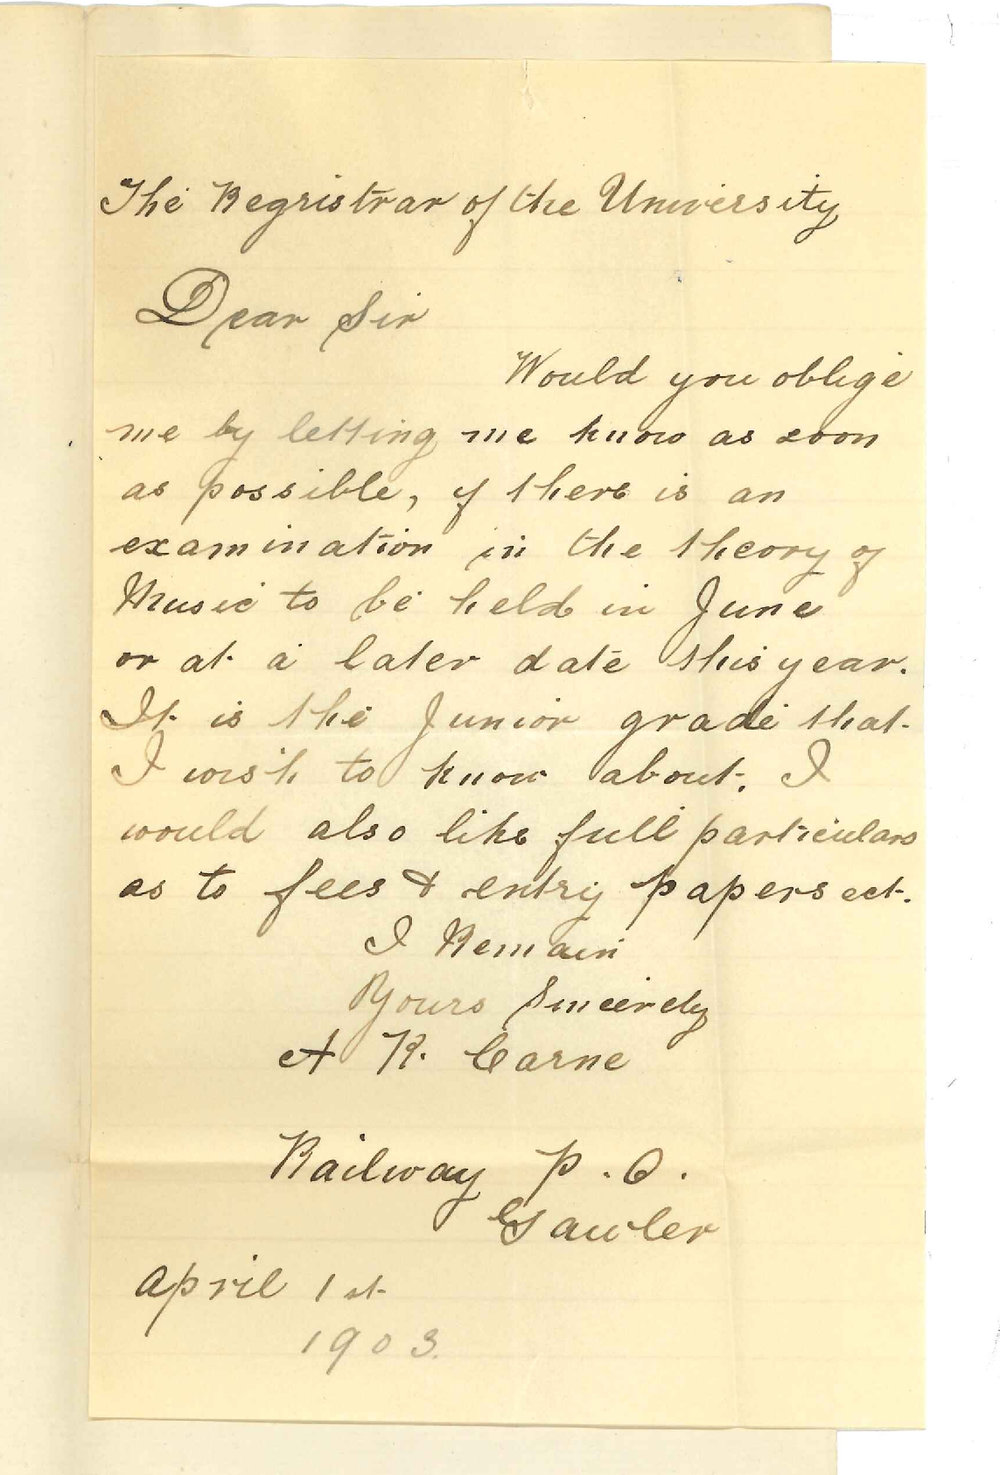 The Registrar of the University
Dear Sir
Would you oblige
me by letting me know as soon
as possible, if there is an
examination in the theory of
Music to be held in June
or at a later date this year.
It is the Junior grade that
I wish to know about. I
would also like full particulars
as to fees & entry papers ect.
I Remain
Yours Sincerely
A R. Carne
Railway P.O.
Gawler
April 1st
1903.